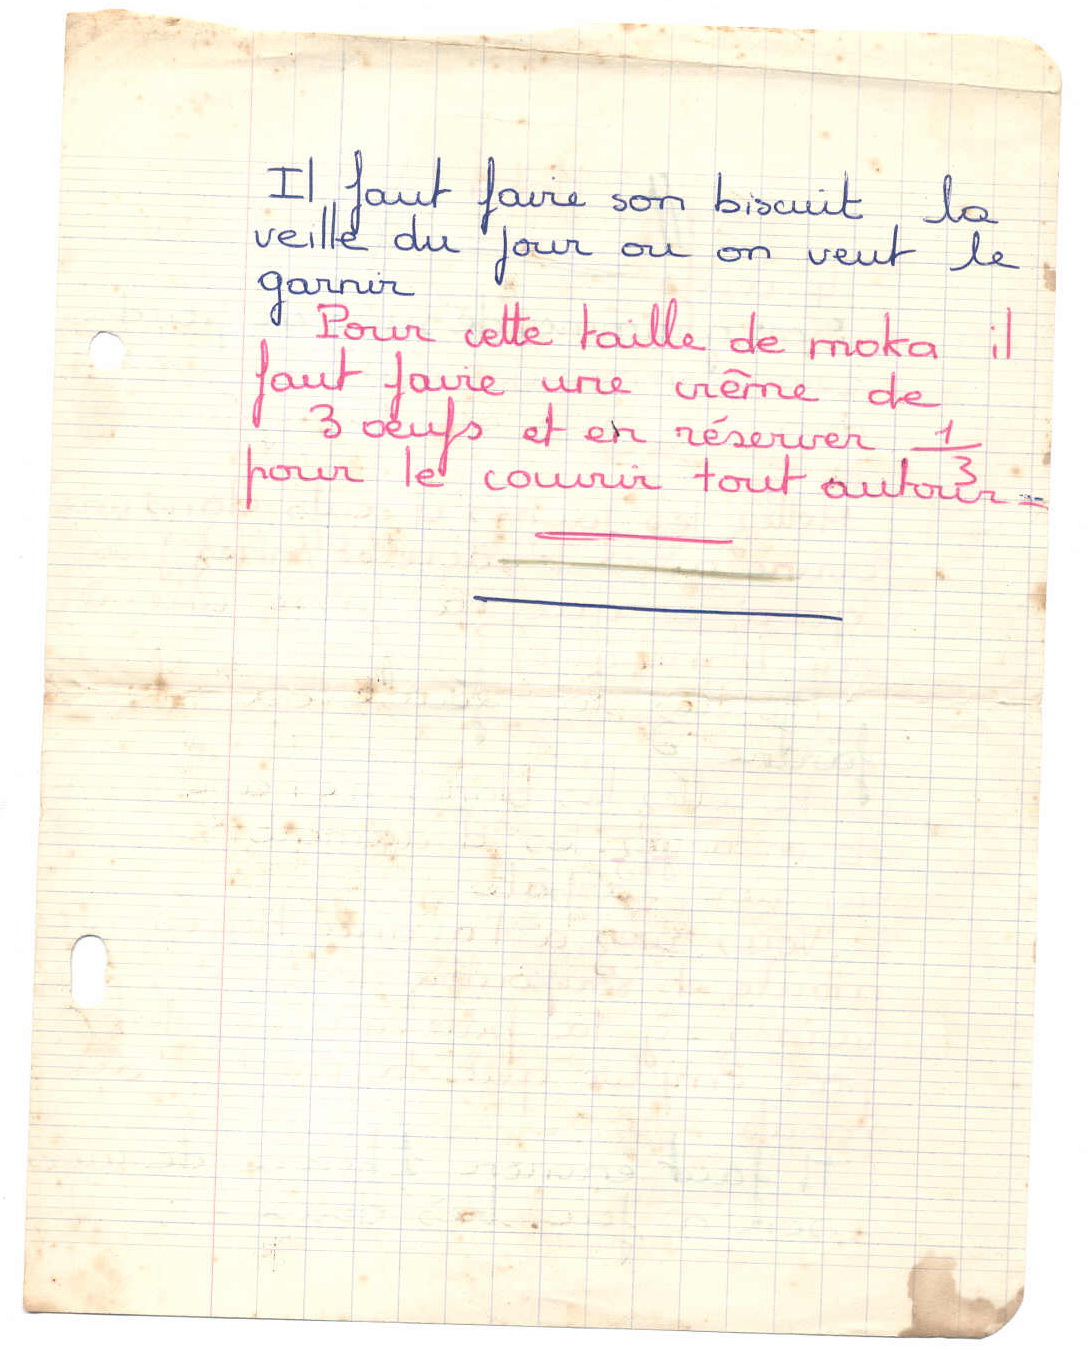 Il faut faire son biscuit la
veille du jour ou on veut le
garnir
Pour cette taille de moka il
faut faire une crême de
3 oeufs et en réserver 1/3
pour le couvrir tout autour -